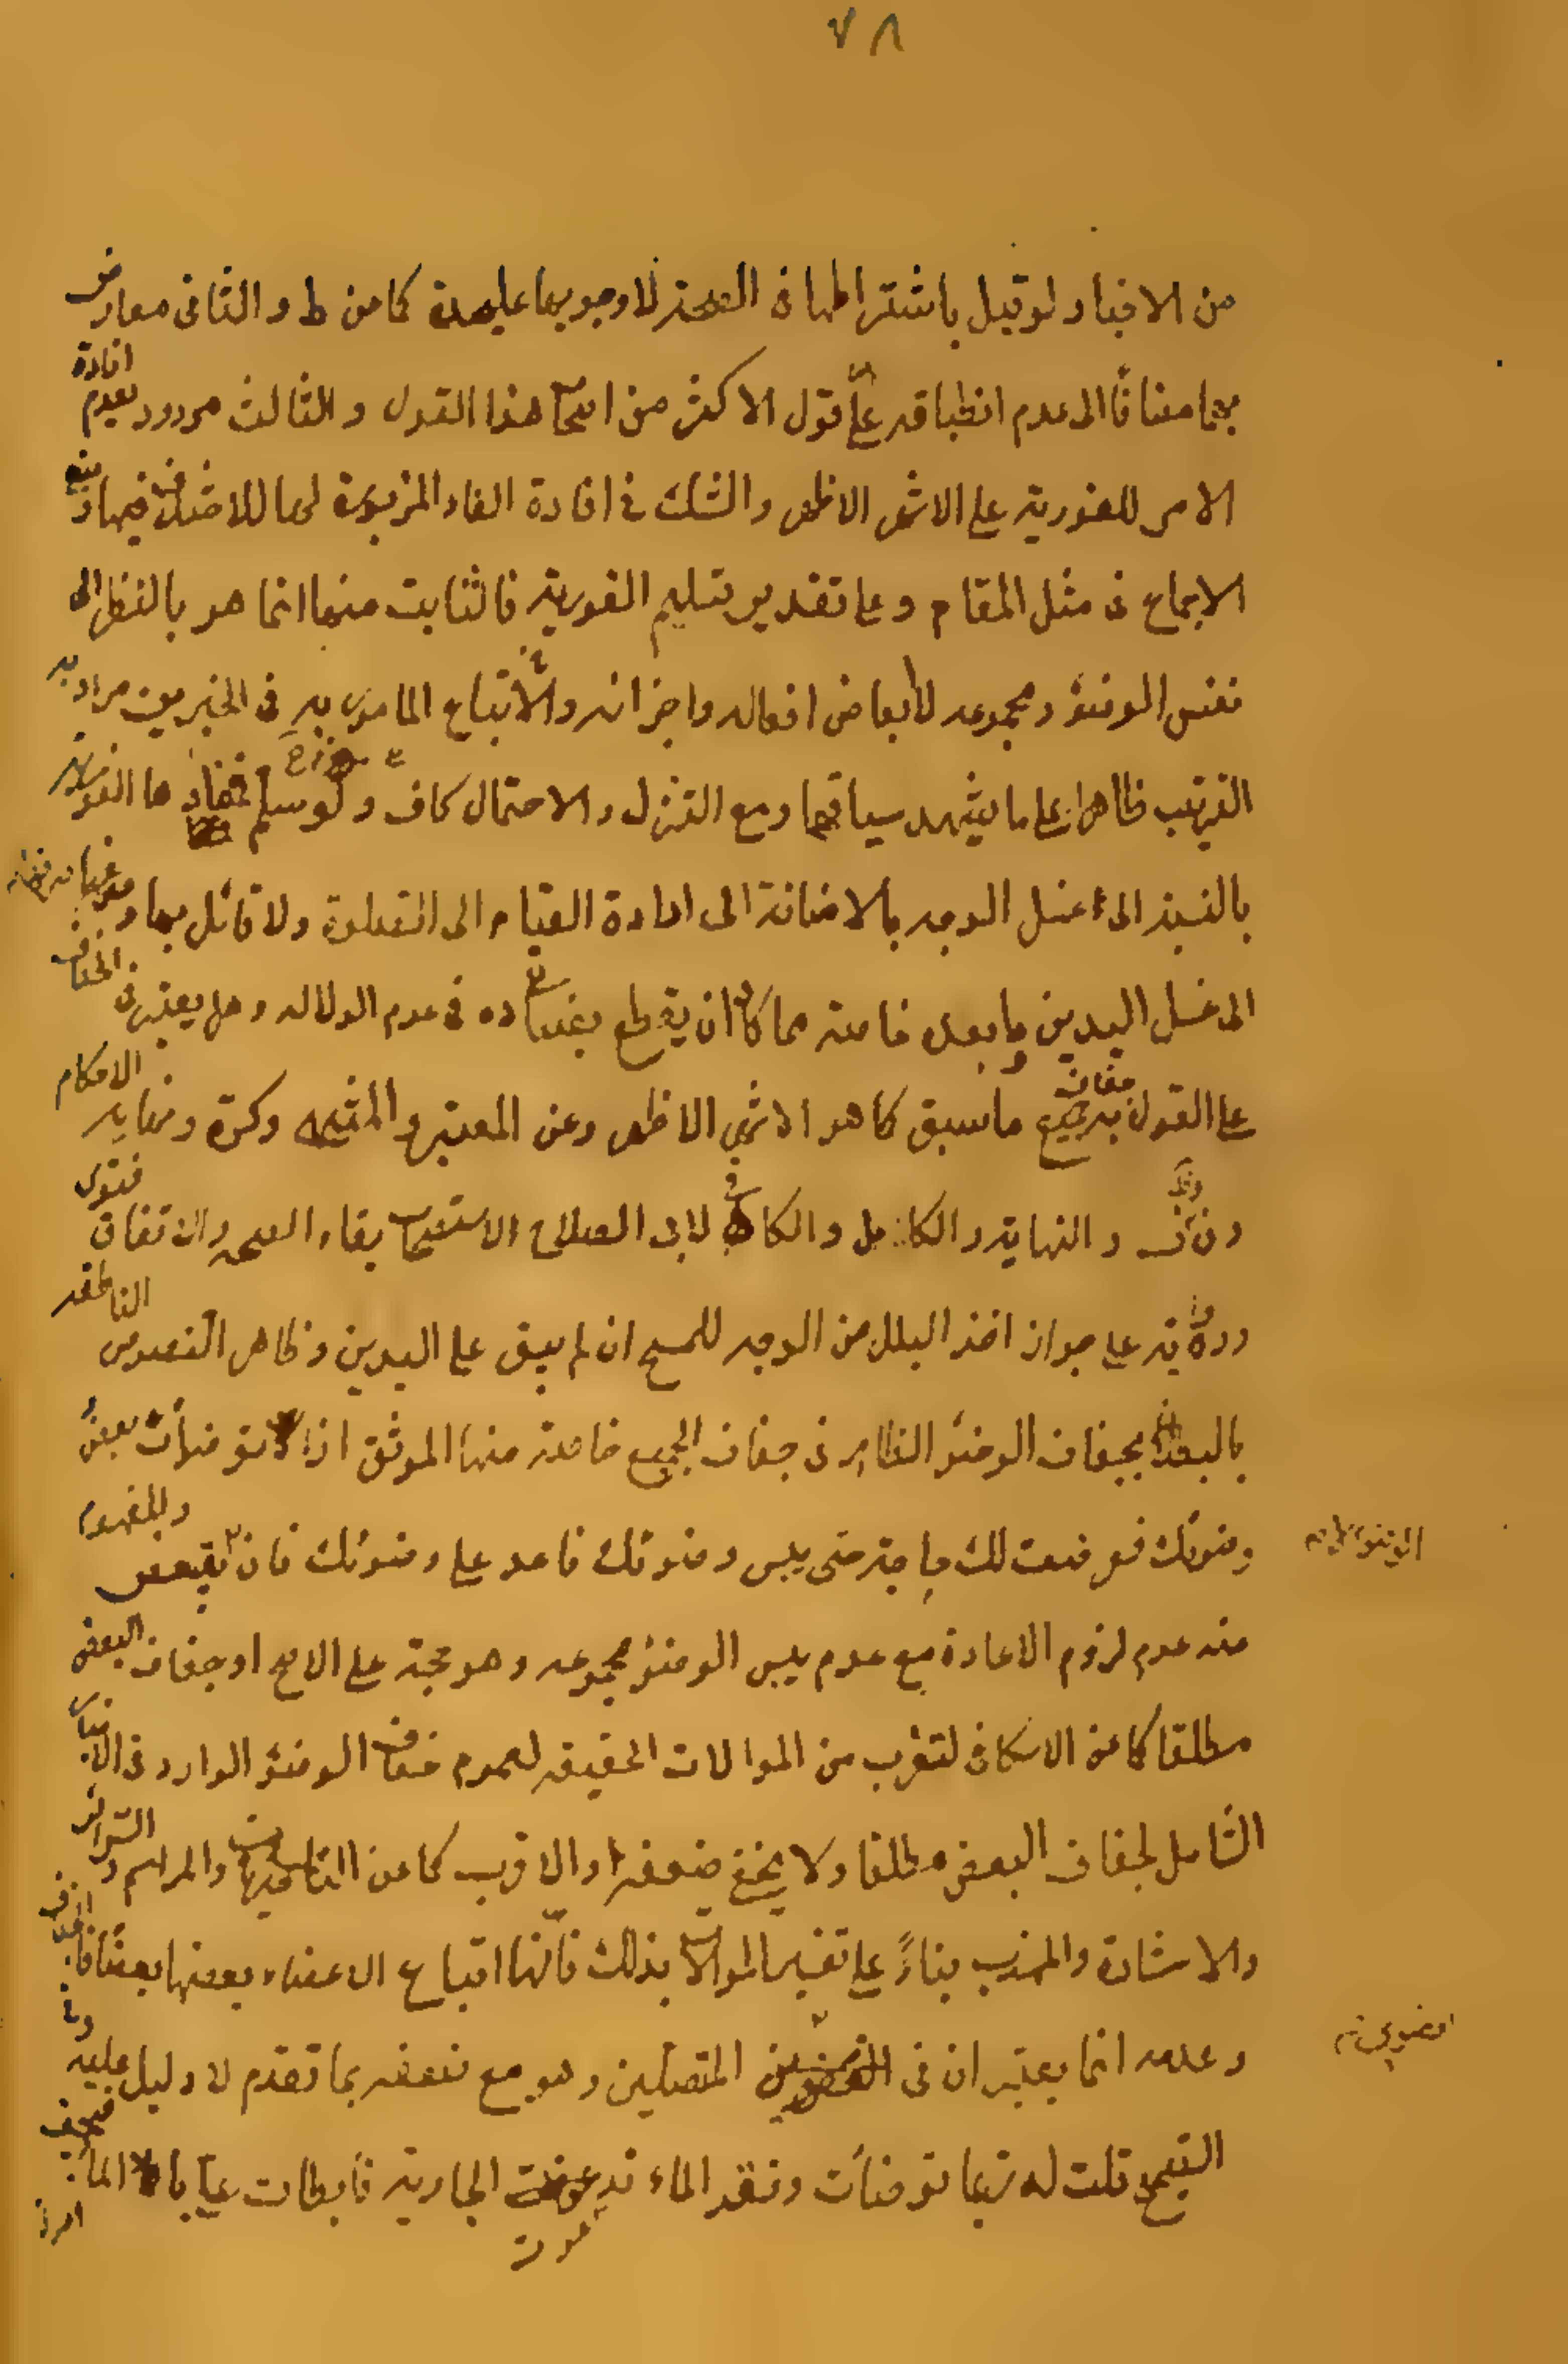 ٧٨
من الاخبار لو قيل باشتراطها في الصحة لا وجوبها عليحدة كما من ط والثاني معارض
بهما مضافًا الى عدم انطباقه على قول الاكثر من اصحاب هذا القول والثالث مردود بعدم افادة
الامر للفورية على الاشهر الاظهر والشك في افادة الفاء المزبورة لها للاختلاف فيها ومنع
الاجماع في مثل المقام وعلى تقدير تسليم الفورية فالثابت منها انما هو بالنظر الى
نفس الوضوء ومجموعه لا ابعاض افعاله واجزائه والاتباع المامور به في الخبرين مراد به
الترتيب ظاهرا على ما يشهد سياقهما ومع التنزل والاحتمال كاف ولو سلم فمفادها الفورية
بالنسبة الى غسل الوجه بالاضافة الى ارادة القيام الى الصلوة ولا قائل بها
الى غسل اليدين وما بعده خاصة مما كاد ان يقطع بفساده في عدم الدلالة وهل يعتبر في الجفاف
على القول بترجيح ما سبق كما هو الاشهر الاظهر وعن المعتبر والمنتهى وكرة ونهاية الاحكام
والنهاية والكامل والكافي لابى الصلاح الاستصحاب بقاء الصحة والاتفاق فتوى
ورواية على جواز اخذ البلل من الوجه للمسح ان لم يبق على اليدين وظاهر النصوص الناطقة
بالبطلان بجفاف الوضوء الظاهر في جفاف الجميع خاصة منها الموثق اذا توضأت بعض
وضوئك فعرضت لك حاجة حتى يبس وضوئك فاعد على وضوئك فان الوضوء لا يتبعض وللمفهوم
منه عدم لزوم الاعادة مع عدم يبس الوضوء مجموعه وهو حجة على الاصح او جفاف البعض
مطلقا كما عن الاسكافي لتقرب من الموالات الحقيقة لعموم جفاف الوضوء الوارد في الاخبار
الشامل لجفاف البعض مطلقا ولا يخفى ضعفه او الاقرب كما عن الناصريات والمراسم والسرائر
والاشارة والمهذب بناءً على تفسير الموالات بذلك فانها اتباع الاعضاء بعضها بعضًا فالجفاف
وعدمه انما يعتبر ان في العضوين المتصلين وهو مع ضعفه بما تقدم لا دليل عليه
الصحيح قلت له ربما توضأت ونفد الماء فدعوت الجارية فابطات علي بالماء فيجف